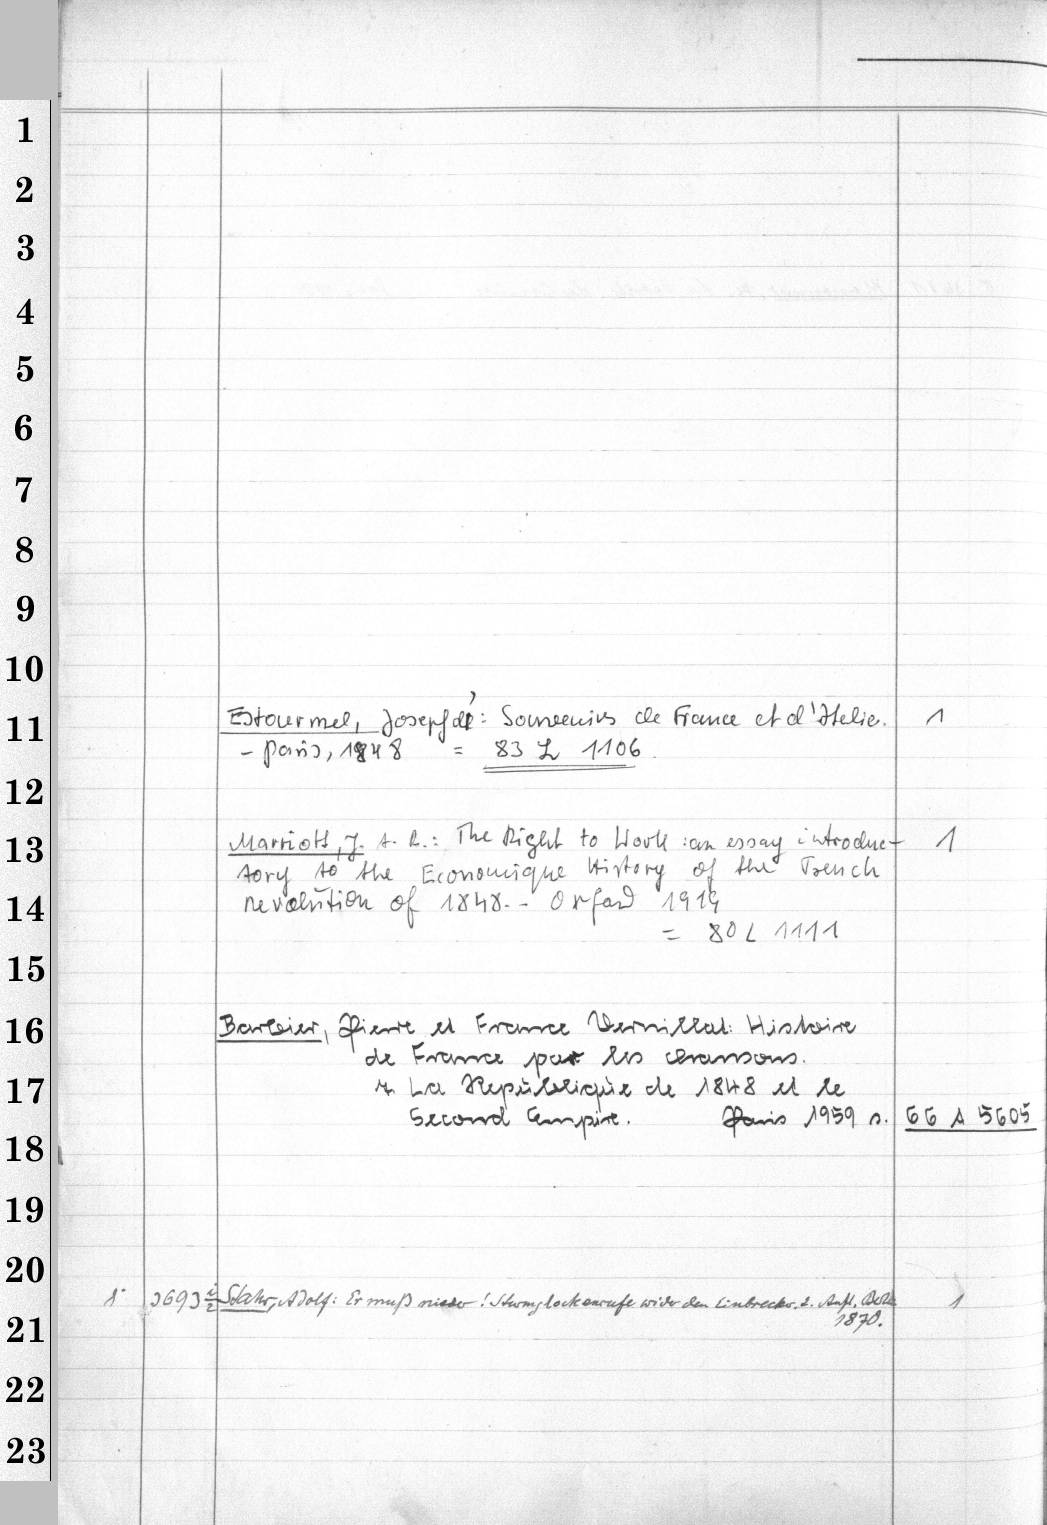 1
2
3
4
5
6
7
8
9
10
11
Estourmel, Joseph d': Souvenirs de France et d'Italie. 1
- Paris, 1848 = 83 L 1106
12
13
Marriott, J. A. R.: The Right to Work : an essay introduc- 1
tory to the Economique History of the French
14
revolution of 1848. - Oxford 1919
= 80 L 1111
15
16
Barbier, Pierre et France Vernillat: Histoire
de France par les chansons.
17
7 La République de 1848 et le
Second Empire. Paris 1959 s. 66 A 5605
18
19
20
8° 3693 i/2 Stahr, Adolf: Er muß nieder! Sturmglockenrufe wider den Einbrecher. 2. Aufl. Berlin 1
1870.
21
22
23